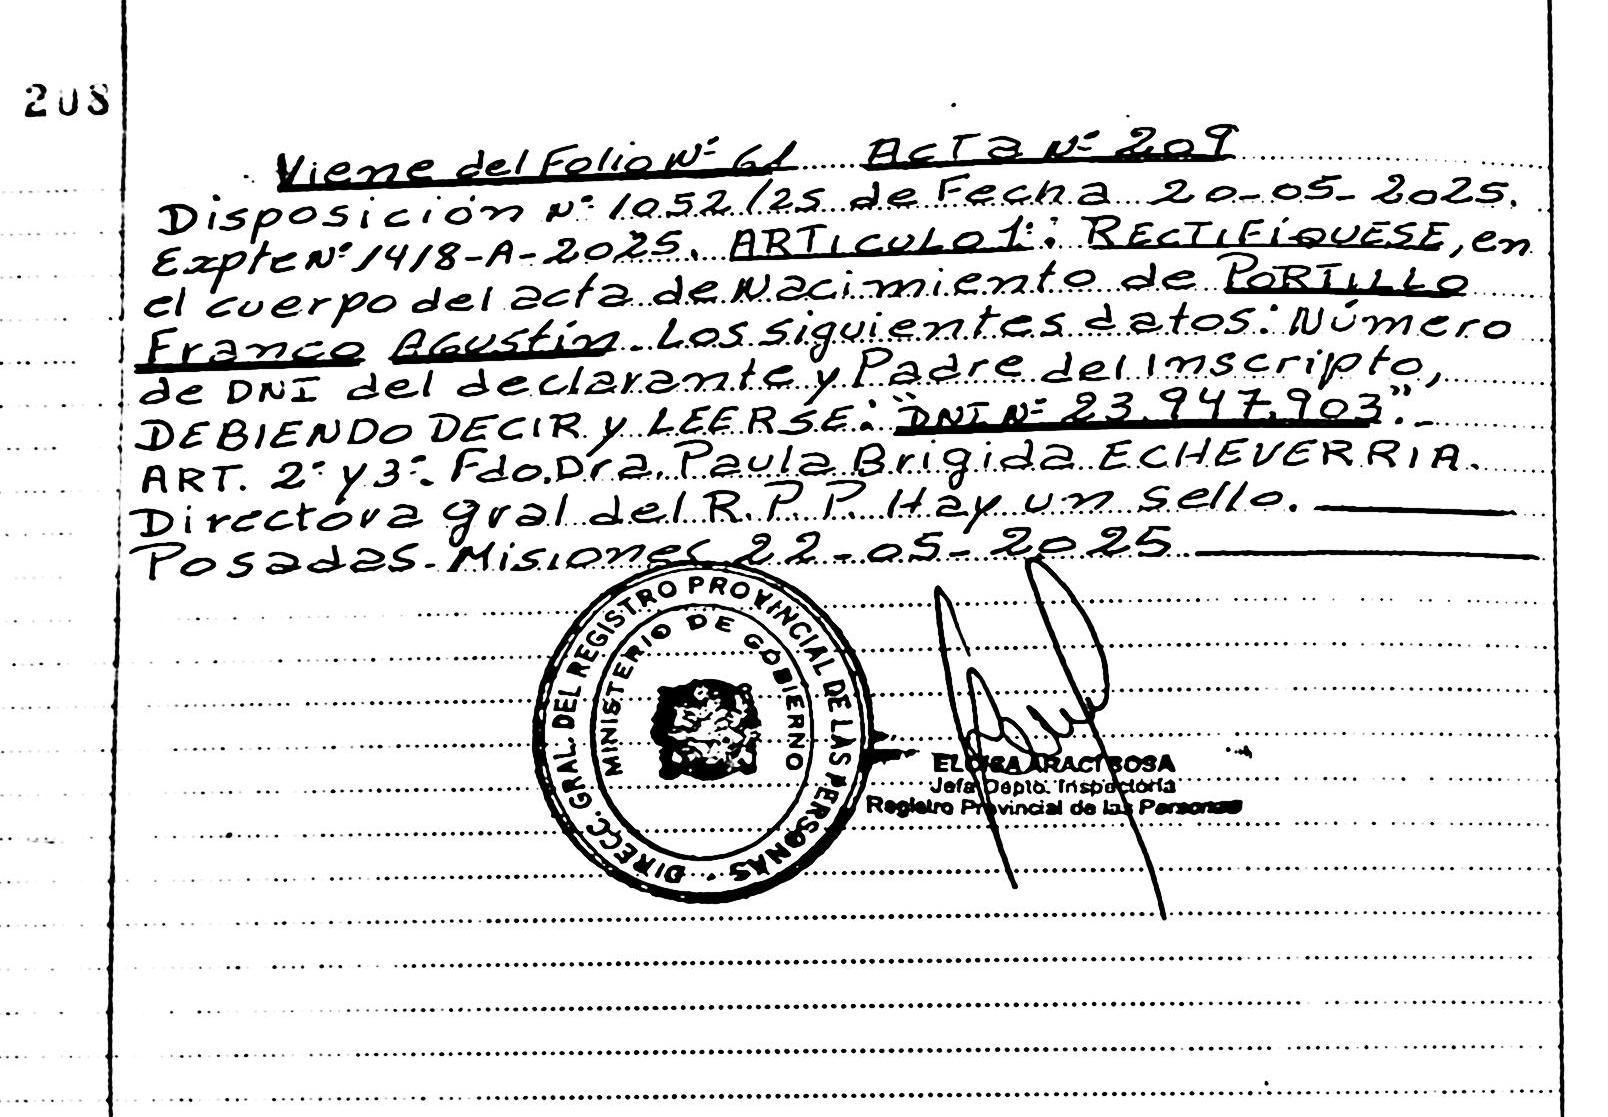 208
Viene del Folio Nº 61 ACTA Nº 209
Disposición Nº 1052/25 de Fecha 20-05-2025.
Expte Nº 1418-A-2025. ARTICULO 1º: RECTIFÍQUESE, en
el cuerpo del acta de Nacimiento de PORTILLO
Franco AGUSTÍN. Los siguientes datos: Número
de DNI del declarante y Padre del Inscripto,
DEBIENDO DECIR y LEERSE: "DNI Nº 23.947.903".-
ART. 2º y 3º. Fdo. Dra. Paula Brigida ECHEVERRIA.
Directora gral del R.P.P. Hay un sello.
Posadas - Misiones 22-05-2025
DIRECC. GRAL. DEL REGISTRO PROVINCIAL DE LAS PERSONAS
MINISTERIO DE GOBIERNO
ELOISA ARACI SOSA
Jefa Depto. Inspectoria
Registro Provincial de las Personas